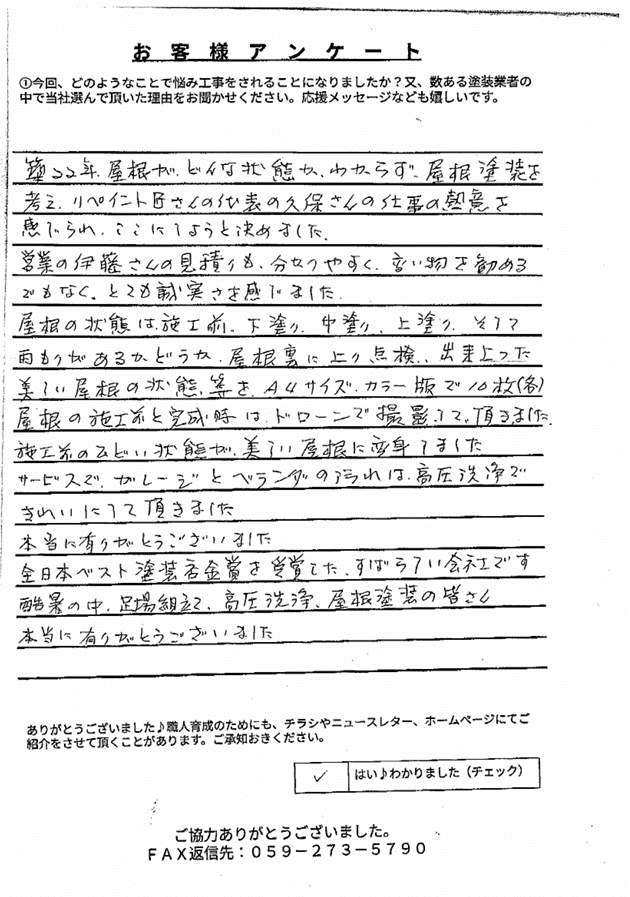 お客様アンケート
①今回、どのようなことで悩み工事をされることになりましたか？又、数ある塗装業者の
中で当社選んで頂いた理由をお聞かせください。応援メッセージなども嬉しいです。
築22年、屋根が、どんな状態か、わからず、屋根塗装を
考え、リペイント匠さんの代表の久保さんの仕事の熱意を
感じられ、ここにしようと決めました。
営業の伊藤さんの見積りも、分かりやすく、高い物を勧める
でもなく。とても誠実さを感じました。
屋根の状態は施工前、下塗り、中塗り、上塗り、そして
雨もりがあるかどうか、屋根裏に上り点検、出来上った
美しい屋根の状態、等を、A4サイズ、カラー版で10枚(各)
屋根の施工前と完成時は、ドローンで撮影して、頂きました。
施工前のひどい状態が、美しい屋根に変身しました
サービスで、ガレージとベランダの汚れは、高圧洗浄で
きれいにして頂きました
本当に有りがとうございました
全日本ベスト塗装店金賞を受賞した、すばらしい会社です
酷暑の中、足場組立て、高圧洗浄、屋根塗装の皆さん
本当に有りがとうございました
ありがとうございました♪職人育成のためにも、チラシやニュースレター、ホームページにてご
紹介をさせて頂くことがあります。ご承知おきください。
✓ はい♪わかりました（チェック）
ご協力ありがとうございました。
ＦＡＸ返信先：０５９－２７３－５７９０